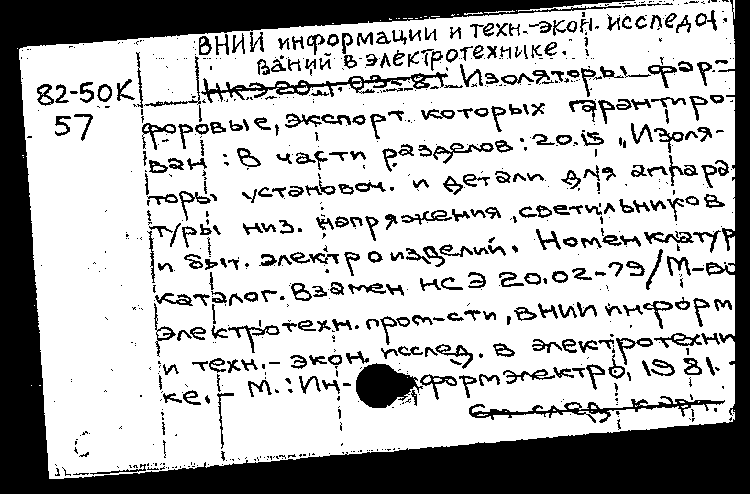 ВНИИ информации и техн.-экон. исследо-
ваний в электротехнике.
82-50К
НКЭ 20.1.03-81 Изоляторы фар-
57
форовые, экспорт которых гарантиро-
ван : В части разделов : 20.15 „Изоля-
торы установоч. и детали для аппара-
туры низ. напряжения, светильников
и быт. электроизделий. Номенклатур.
каталог. Взамен НСЭ 20.02-79/М-во
электротехн. пром-сти, ВНИИ информ.
и техн.-экон. исслед. в электротехни-
ке. - М. : Информэлектро, 1981. -
См след. карт.
С